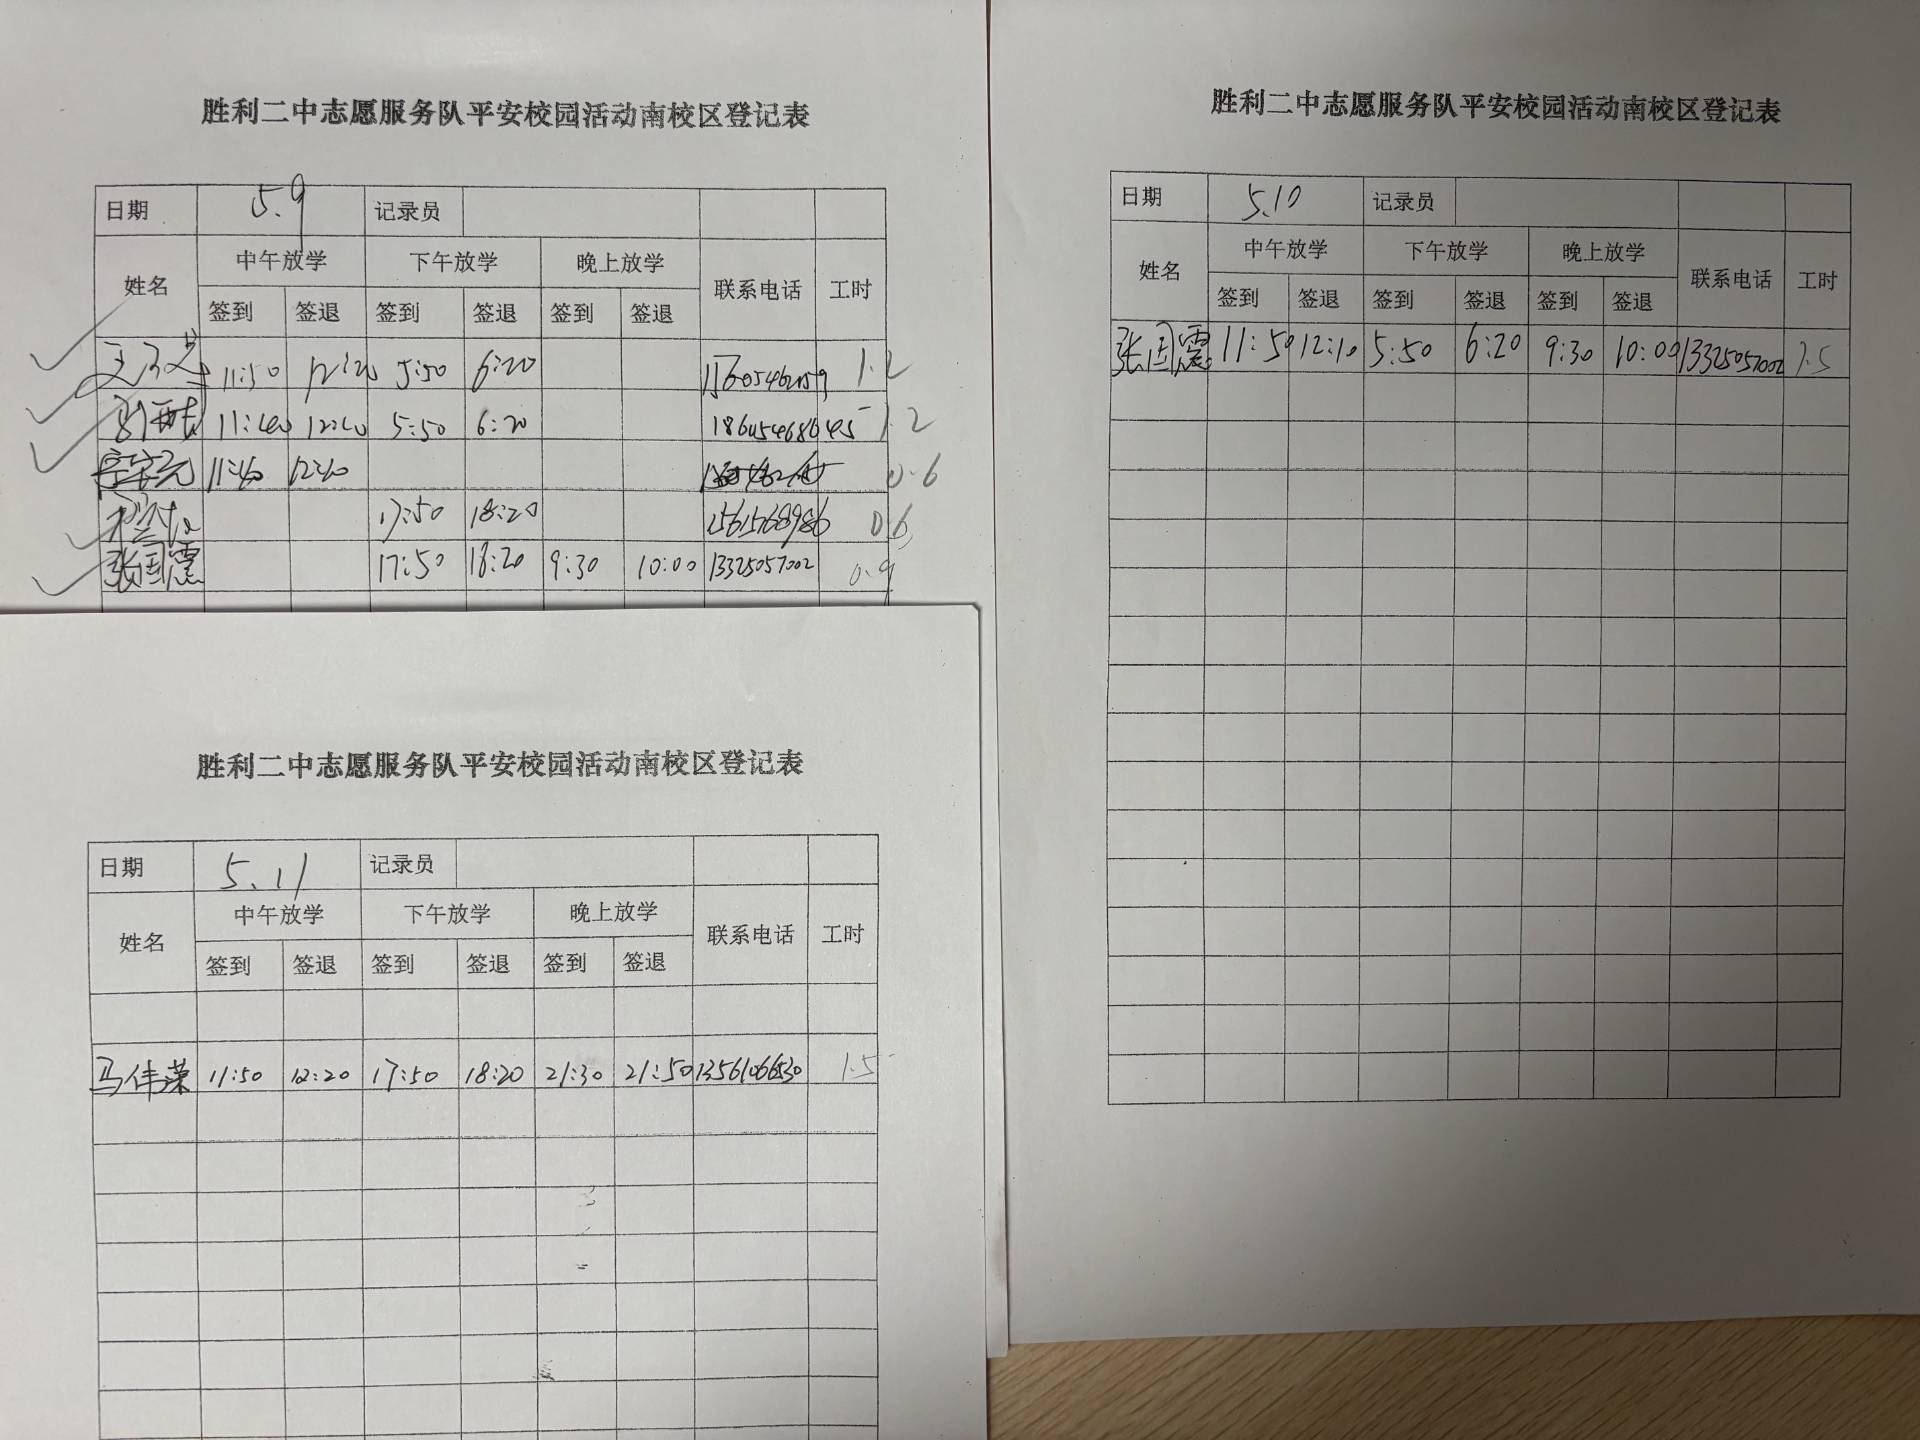 胜利二中志愿服务队平安校园活动南校区登记表
日期 5.9 记录员
姓名 中午放学 下午放学 晚上放学 联系电话 工时
签到 签退 签到 签退 签到 签退
11:50 12:20 5:50 6:20 1.2
11:40 12:40 5:50 6:20 18605468645 1.2
11:40 12:40 0.6
17:50 18:20 15615768986 0.6
张国震 17:50 18:20 9:30 10:00 13325057002 0.9
胜利二中志愿服务队平安校园活动南校区登记表
日期 5.10 记录员
姓名 中午放学 下午放学 晚上放学 联系电话 工时
签到 签退 签到 签退 签到 签退
张国震 11:50 12:10 5:50 6:20 9:30 10:00 13325057002 1.5
胜利二中志愿服务队平安校园活动南校区登记表
日期 5.11 记录员
姓名 中午放学 下午放学 晚上放学 联系电话 工时
签到 签退 签到 签退 签到 签退
马伟荣 11:50 12:20 17:50 18:20 21:30 21:50 13561066530 1.5